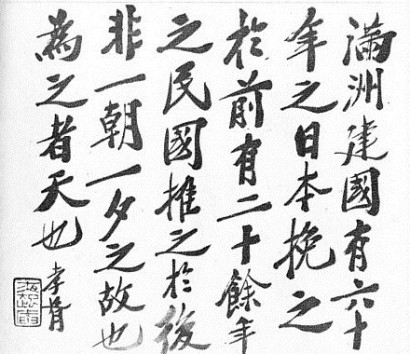 滿洲建國有六十
年之日本挽之
於前有二十餘年
之民國推之於後
非一朝一夕之故也
為之者天也
孝胥